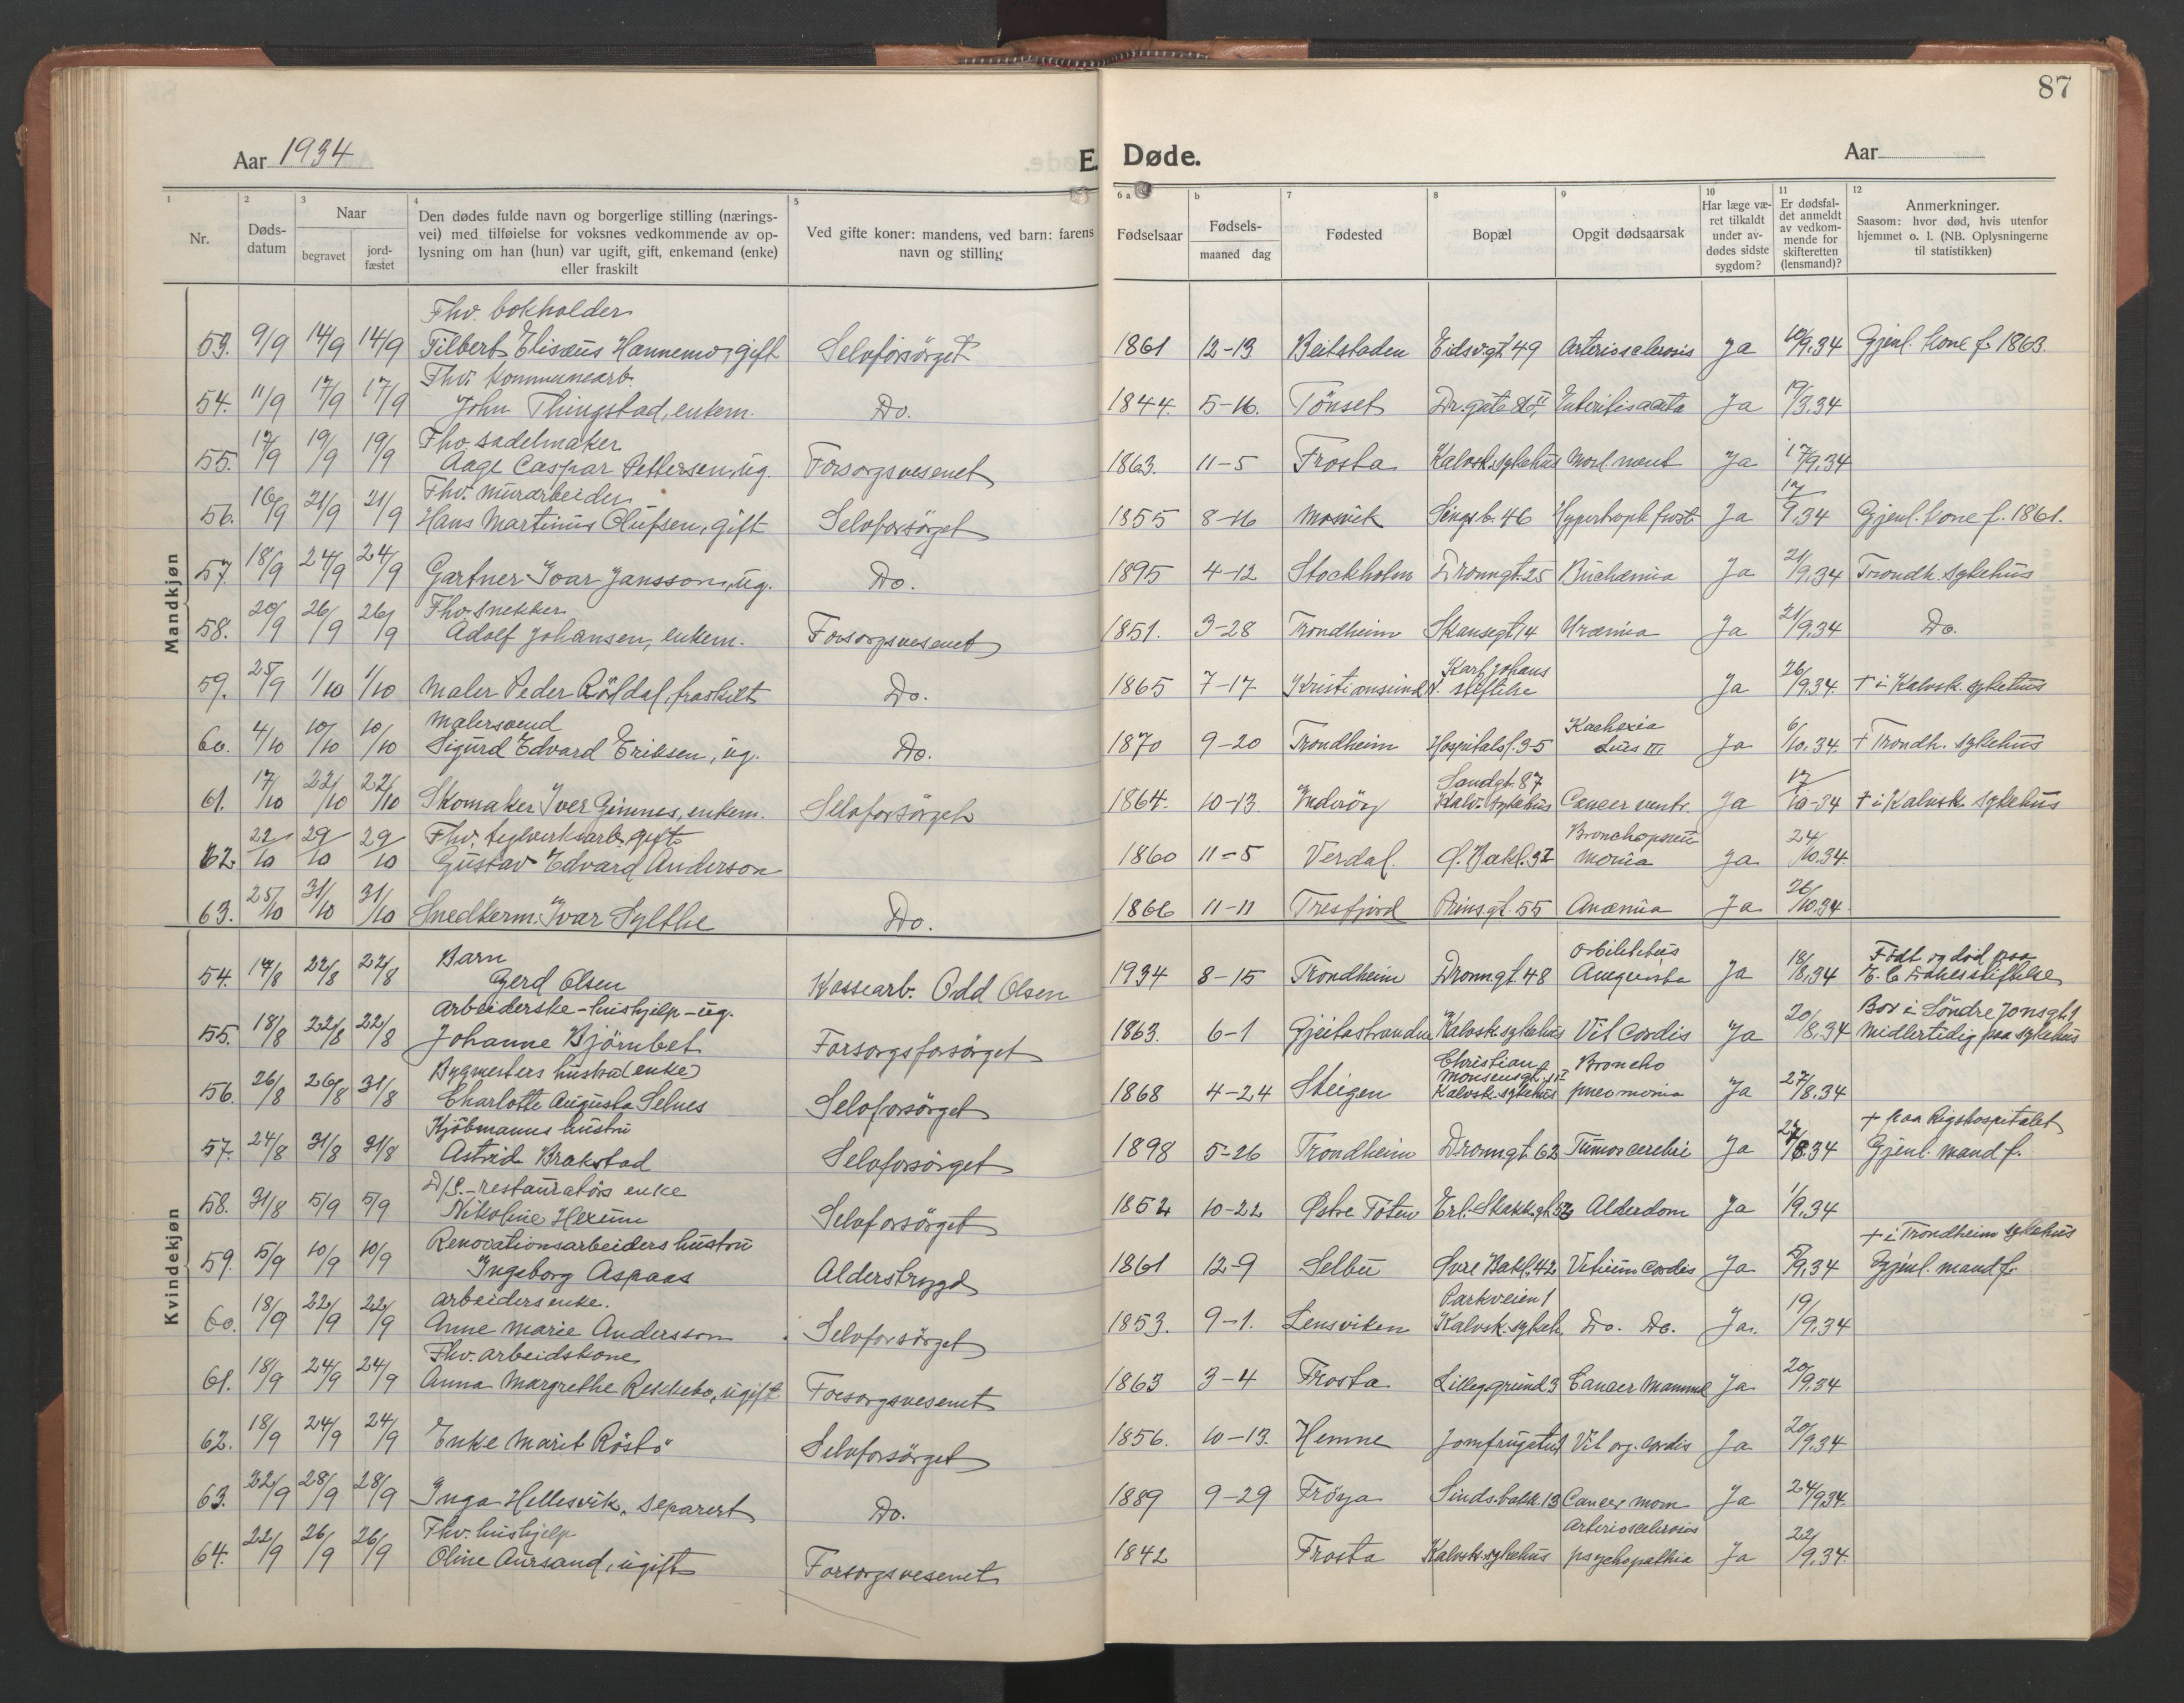 87
Aar 1934 E. Døde. Aar
1 2 3 4 5 6 a b 7 8 9 10 11 12
Nr.
Døds-
datum
Naar
begravet
jord-
fæstet
Den dødes fulde navn og borgerlige stilling (nærings-
vei) med tilføielse for voksnes vedkommende av op-
lysning om han (hun) var ugift, gift, enkemand (enke)
eller fraskilt
Ved gifte koner: mandens, ved barn: farens
navn og stilling
Fødselsaar
Fødsels-
maaned dag
Fødested
Bopæl
Opgit dødsaarsak
Har læge væ-
ret tilkaldt
under av-
dødes sidste
sygdom?
Er dødsfal-
det anmeldt
av vedkom-
mende for
skifteretten
(lensmand)?
Anmerkninger.
Saasom: hvor død, hvis utenfor
hjemmet o. l. (NB. Oplysningerne
til statistikken)
Mandkjøn
Fhv. bokholder
53. 9/9 14/9 14/9 Tilbert Elisæus Hannemo, gift Selvforsörget 1861 12-13 Beitstaden Eidsvgt 49 Arteriosclerosis Ja 10/9.34 Gjenl. kone f. 1863.
Fhv. kommunearb.
54. 11/9 17/9 17/9 John Thingstad, enkem. Do. 1844. 5-16. Tönset Ja
Fhv. sadelmaker
55. 17/9 19/9 19/9 Aage Caspar Pettersen, ug. Forsorgsvesenet 1863. 11-5 Frosta Kalvsk. sykehus Ja 17/9.34
Fhv. murarbeider
56. 16/9 21/9 21/9 Hans Martinus Olufsen, gift Selvforsörget 1855 8-16 Mosvik Ja 17/9.34 Gjenl. kone f. 1861.
57. 18/9 24/9 24/9 Gartner Ivar Jansson, ug. Do. 1895 4-12 Stockholm Dronngt. 25 Ja 21/9.34 Trondh. sykehus
Fhv. snekker
58. 20/9 26/9 26/9 Adolf Johansen, enkem. Forsorgsvesenet 1851. 3-28 Trondheim Skansegt 14 Uræmia Ja 21/9.34 Do.
59. 25/9 1/10 1/10 Maler Peder Röldal, fraskilt Do. 1865 7-17 Kristiansund N. Karl Johans stiftelse Ja 26/9.34 + i Kalvsk. sykehus
Malersvend
60. 4/10 10/10 10/10 Sigurd Edvard Eriksen, ug. Do. 1870 9-20 Trondheim Hospitalsl. 35 Kachexia Lues III Ja 6/10.34 + Trondh. sykehus
61. 17/10 22/10 22/10 Skomaker Iver Gimnes, enkem. Selvforsörget 1864. 10-13. Inderöy Sandgt. 87 Kalv. sykehus Cancer ventr. Ja 17/10-34 + i Kalvsk. sykehus
Fhv. teglverksarb. gift
62. 22/10 29/10 29/10 Gustav Edvard Anderson 1860 11-5 Verdal. Bronchopneumonia Ja 24/10.34
63. 25/10 31/10 31/10 Snedkerm. Ivar Sylthe Do. 1866 11-11 Tresfjord Prinsgt. 55 Anæmia Ja 26/10.34
Kvindekjøn
Barn
54. 17/8 22/8 22/8 Gerd Olsen Kassearb. Odd Olsen 1934 8-15 Trondheim Dronngt 48 Ja 18/8.34 Född og död paa E. C. Dahls stiftelse
Arbeiderske-hushjelp-ug.
55. 18/8 22/8 22/8 Johanne Björnbet Forsorgsforsörget 1863. 6-1 Gjeitastranden Kalvsk. sykehus Vit cordis Ja 20/8.34 Bor i Söndre Jonsgt. 1 midlertidig paa sykehus
Bygmesters hustru (enke)
56. 26/8 26/8 31/8 Charlotte Augusta Selnes Selvforsörget 1868 4-24 Steigen Christian Monsensgt. Kalvsk. sykehus Broncho pneomonia Ja 27/8.34
Kjöbmanns hustru
57. 24/8 31/8 31/8 Astrid Brakstad Selvforsörget 1898 5-26 Trondheim Dronngt 62 Tumor cerebri Ja 27/8.34 + paa Rigshospitalet Gjenl. mand f.
D/S.-restauratörs enke
58. 31/8 5/9 5/9 Nikoline Hexum Selvforsörget 1852 10-22 Östre Toten Erl. Skakkgt. Alderdom Ja 1/9.34
Renovationsarbeiders hustru
59. 5/9 10/9 10/9 Ingeborg Aspaas Alderstrygd 1861 12-9 Selbu Övre Bakl. 42 Vitium cordis Ja 5/9.34 + i Trondheim sykehus Gjenl. mand f.
Arbeiders enke.
60. 18/9 22/9 22/9 Anne Marie Andersson Selvforsörget 1853. 9-1. Lensviken Parkveien 1 Kalvsk. sykeh. Do. Do. Ja. 19/9.34
Fhv. arbeidskone
61. 18/9 24/9 24/9 Anna Margrethe Rekkebo, ugift Forsorgsvesenet 1863 3-4 Frosta Lilleggrund 3 Cancer Mammae Ja 20/9.34
62. 18/9 24/9 24/9 Enke Marit Röstö Selvforsörget 1856. 10-13. Hemne Vit org. cordis Ja 20/9.34
63. 22/9 28/9 28/9 Inga Hellesvik, separert Do. 1889 9-29 Fröya Sinds.bakk. 13 Cancer mam Ja 24/9.34
Fhv. hushjelp
64. 22/9 26/9 26/9 Oline Aursand, ugift Forsorgsvesenet 1842 Frosta Kalvsk. sykehus Arteriosclerosis psychopathia Ja 22/9.34